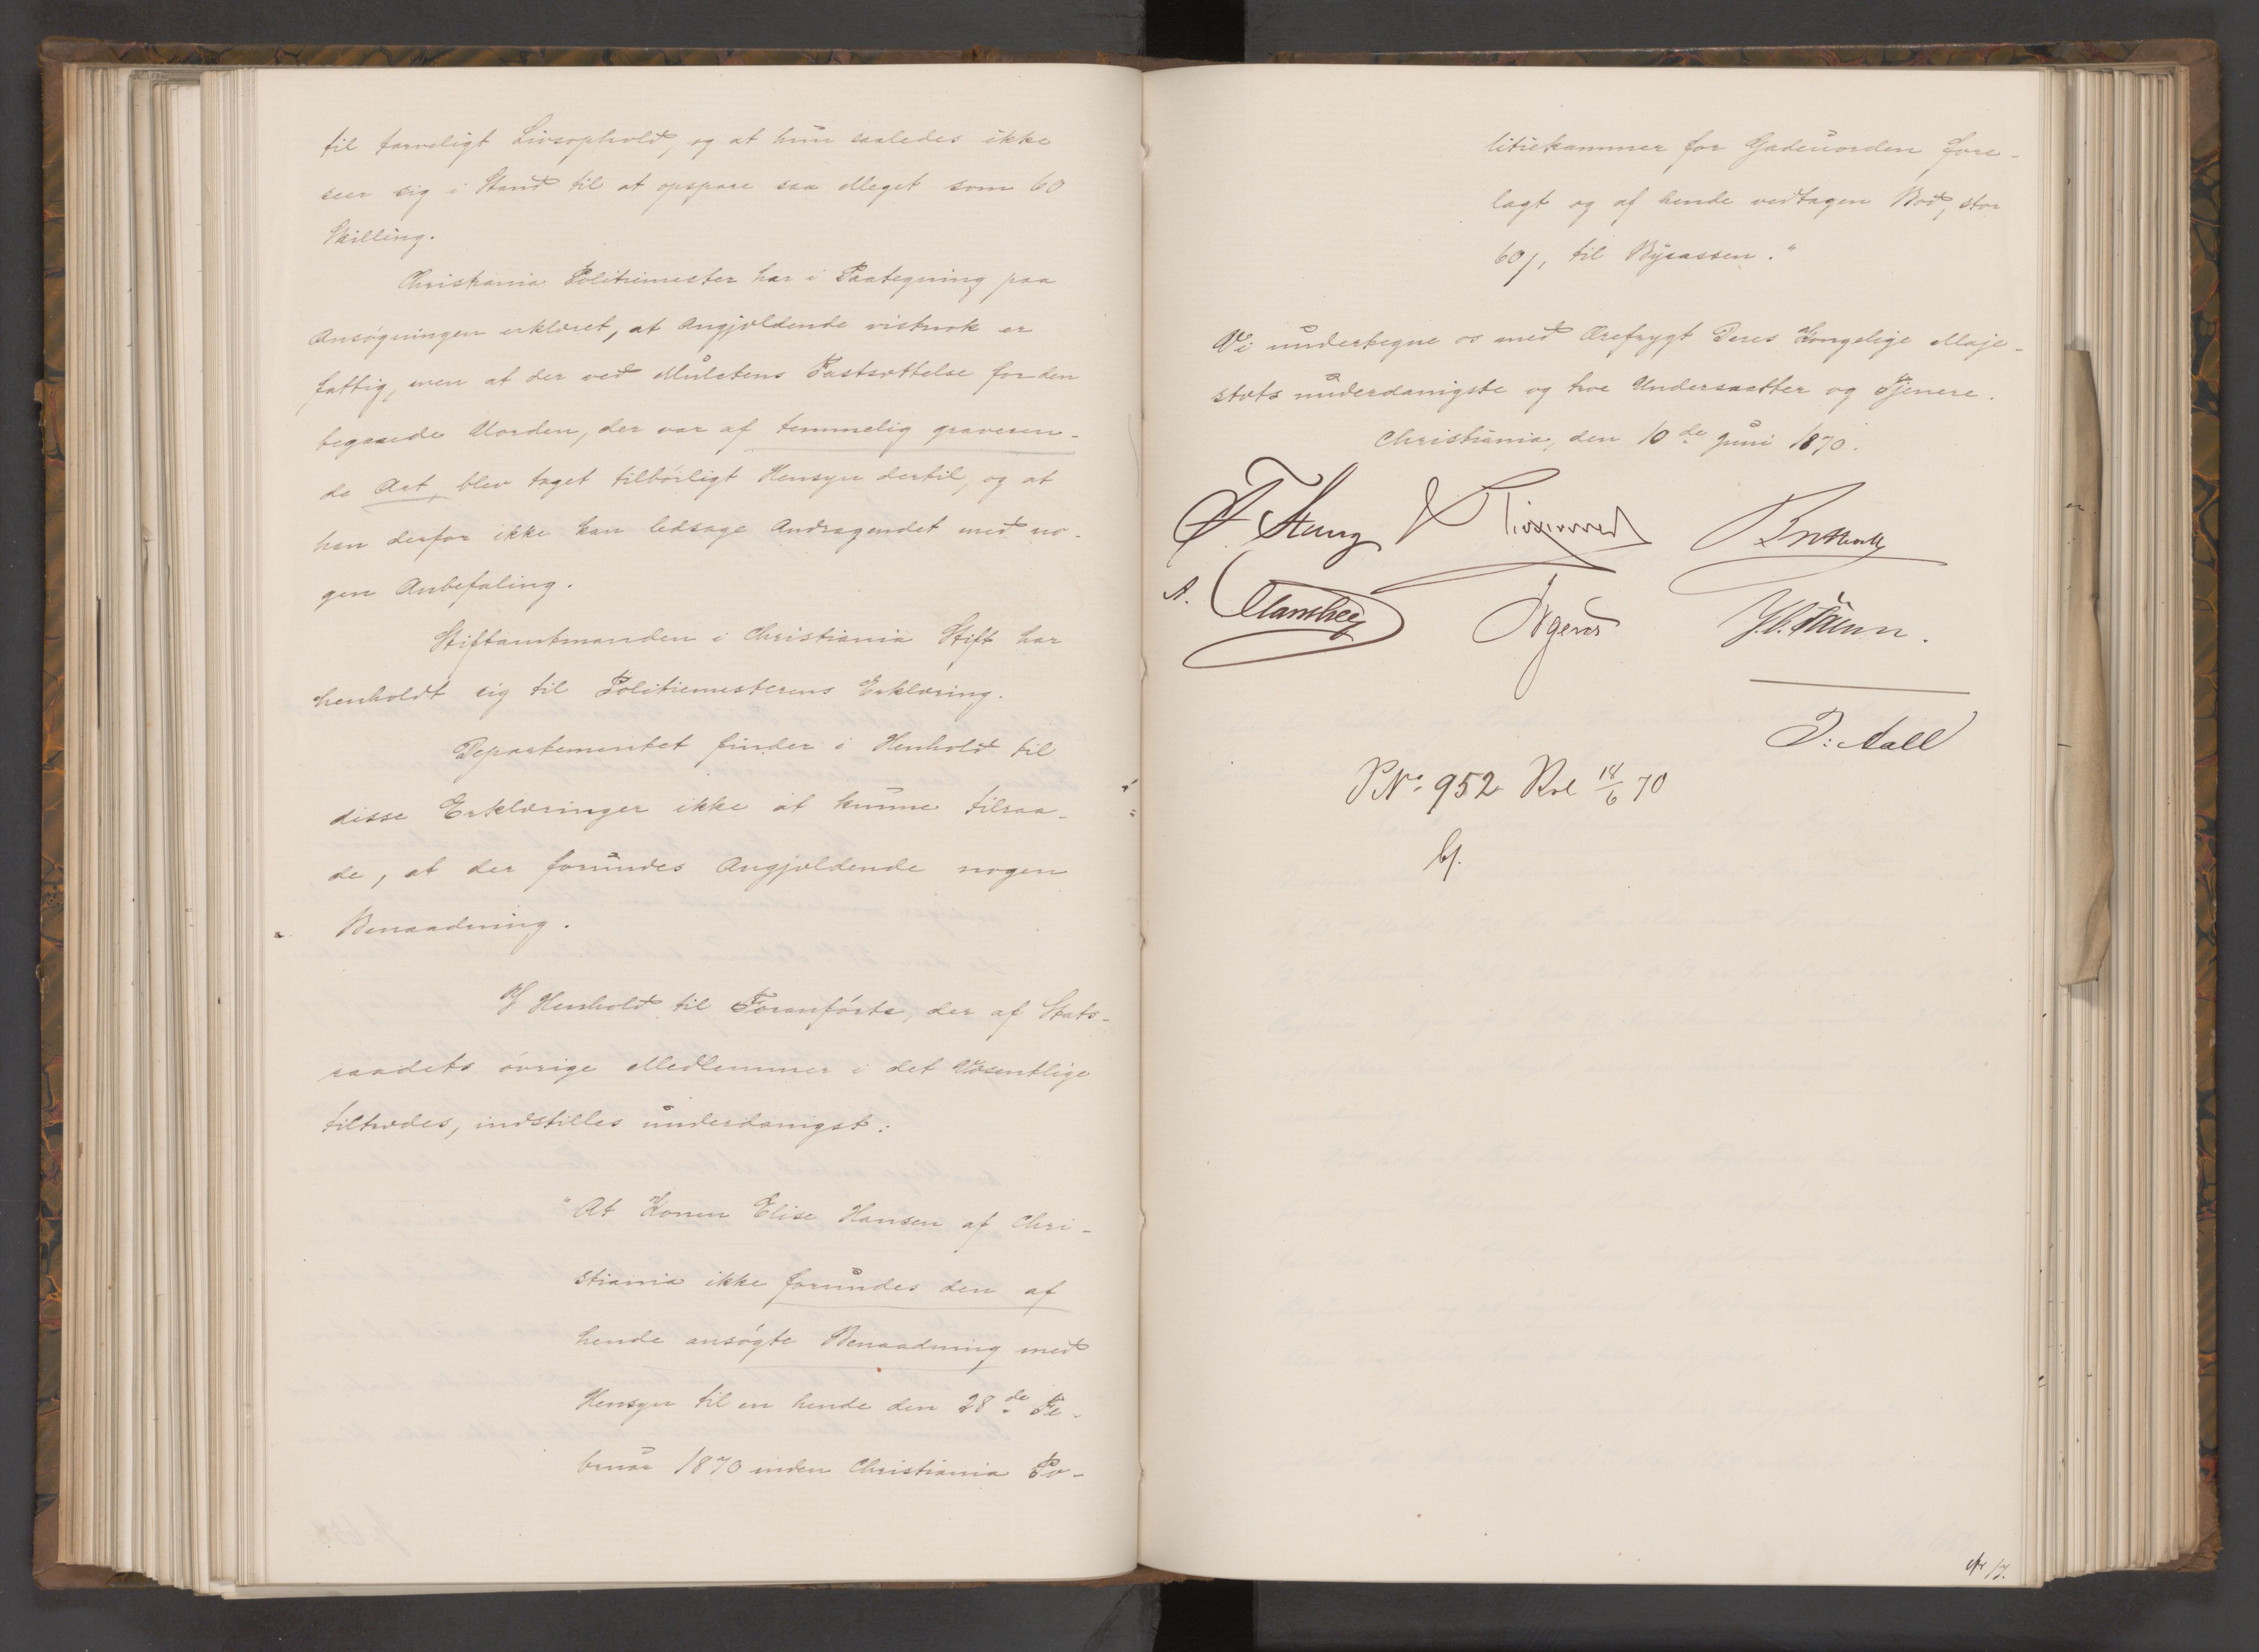 til tarveligt Livsophold, og at hun saaledes ikke
seer sig i Stand til at opspare saa Meget som 60
Skilling.
Christiania Politimester har i Paategning paa
Ansøgningen erklæret, at Angjældende vistnok er
fattig, men at der ved Mulctens Fastsættelse for den
begaaede Uorden, der var af temmelig graveren-
de Art, blev taget tilbørligt Hensyn dertil, og at
han derfor ikke kan ledsage Andragendet med no-
gen Anbefaling.
Stiftamtmanden i Christiania Stift har
henholdt sig til Politimesterens Erklæring.
Departementet finder i Henhold til
disse Erklæringer ikke at kunne tilraa-
de, at der forundes Angjældende nogen
Benaadning.
I Henhold til Foranførte, der af Stats-
raadets øvrige Medlemmer i det Væsentlige
tiltrædes, indstilles underdanigst:
"At Konen Elise Hansen af Chri-
stiania ikke forundes den af
hende ansøgte Benaadning med
Hensyn til en hende den 28de Fe-
bruar 1870 inden Christiania Po-
litiekammer for Gadeuorden fore-
lagt og af hende vedtagen Bod, stor
60 ʃ, til Bycassen."
Vi undertegne os med Ærefrygt Deres Kongelige Maje-
stæts underdanigste og troe Undersaatter og Tjenere.
Christiania, den 10de Juni 1870.
F. Stang
Irgens
J: Aall
P No: 952 Krl 18/6 70
No 17.